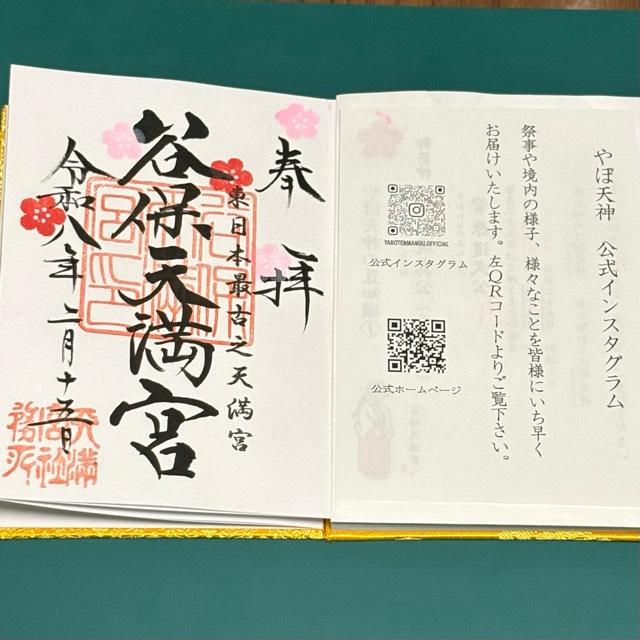 やぼ天神　公式インスタグラム
祭事や境内の様子、様々なことを皆様にいち早く
お届けいたします。左QRコードよりご覧下さい。
YABOTENMANGU.OFFICIAL
公式インスタグラム
公式ホームページ
奉拝
東日本最古之天満宮
谷保天満宮
令和八年二月十五日
天満
宮社
務所